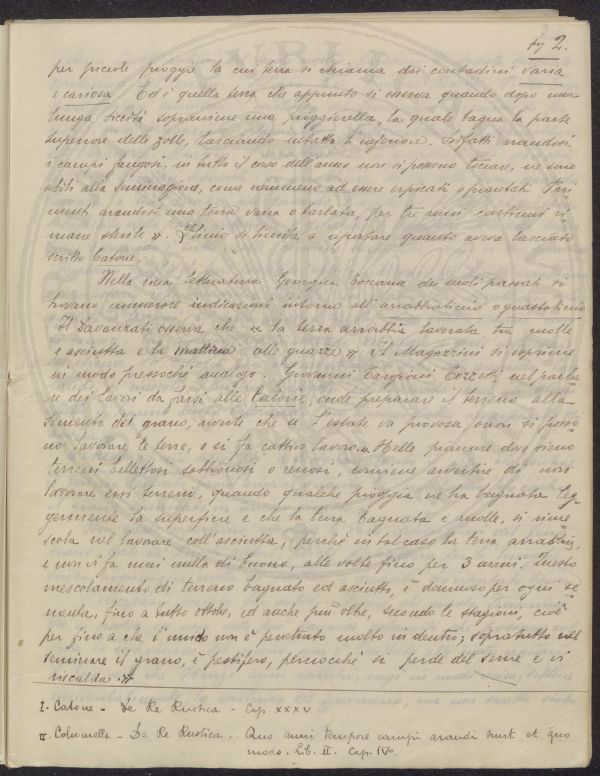 pag 2.
per piccole pioggie la cui terra si chiama dai contadini varia
e cariosa. Ed è quella terra che appunto si osserva quando dopo una
lunga siccità sopravviene una pioggerella, la quale bagna la parte
superiore delle zolle, lasciando intatta l'inferiore. Infatti arandosi
i campi fangosi, in tutto il corso dell'anno non si possono toccare, nè sono
abili alla seminagione, come nemmeno ad essere erpicati o piantati. Pari
menti arandosi una terra varia o tarlata, per tre anni continui ri
mane sterile ». Plinio si limita a riportare quanto aveva lasciato
scritto Catone.
Nella ricca letteratura Georgica Toscana dei secoli passati si
trovano numerose indicazioni intorno all'arrabbiaticcio o guastaticcio
Il Davanzati osserva che « la terra arrabbia lavorata tra molle
e asciutta e la mattina alle guazze » Il Magazzini si esprime
in modo pressochè analogo. Giovanni Targioni Tozzetti, nel parla
re dei lavori da farsi alle Calorie, onde preparare il terreno alla
sementa del grano, avverte che se l'estate va piovosa, o non si posso
no lavorare le terre, o si fa cattivo lavoro. « Nelle pianure dove sieno
terreni bellettosi sabbionosi o renosi, conviene avvertire di non
lavorare essi terreni, quando qualche pioggia ne ha bagnata leg-
germente la superficie e che la terra bagnata e molle, si rime
scola nel lavorare coll'asciutta, perchè in tal caso la terra arrabbia,
e non vi fa mai nulla di buono, alle volte fino per 3 anni. Questo
mescolamento di terreno bagnato ed asciutto, è dannoso per ogni se
menta, fino a tutto ottobre, ed anche più oltre, secondo le stagioni, cioè
per fino a che l'umido non è penetrato molto in dentro; sopratutto nel
seminare il grano, è pestifero, perciocchè si perde del seme e vi
riscalda. »
I. Catone - De Re Rustica - Cap. XXXV
II. Columella - De Re Rustica. Quo anni tempore campi arandi sunt et quo
modo. Lib. II. Cap. IVo.